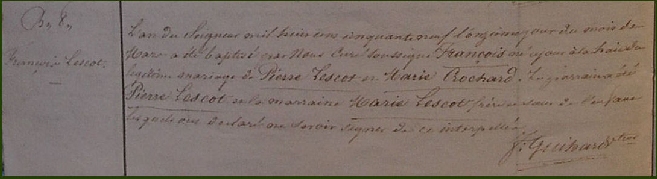 B. 8.
François Lescot.
L'an du Seigneur mil huit cent cinquante neuf l'onzième jour du mois de
Mars a été baptisé par Nous Curé soussigné François né
légitime mariage de Pierre Lescot et Marie Crochard. Le parrain a été
Pierre Lescot et la marraine Marie Lescot frère et sœur de l'enfant
lesquels ont déclaré ne savoir signer de ce interpellés
f. Guihard